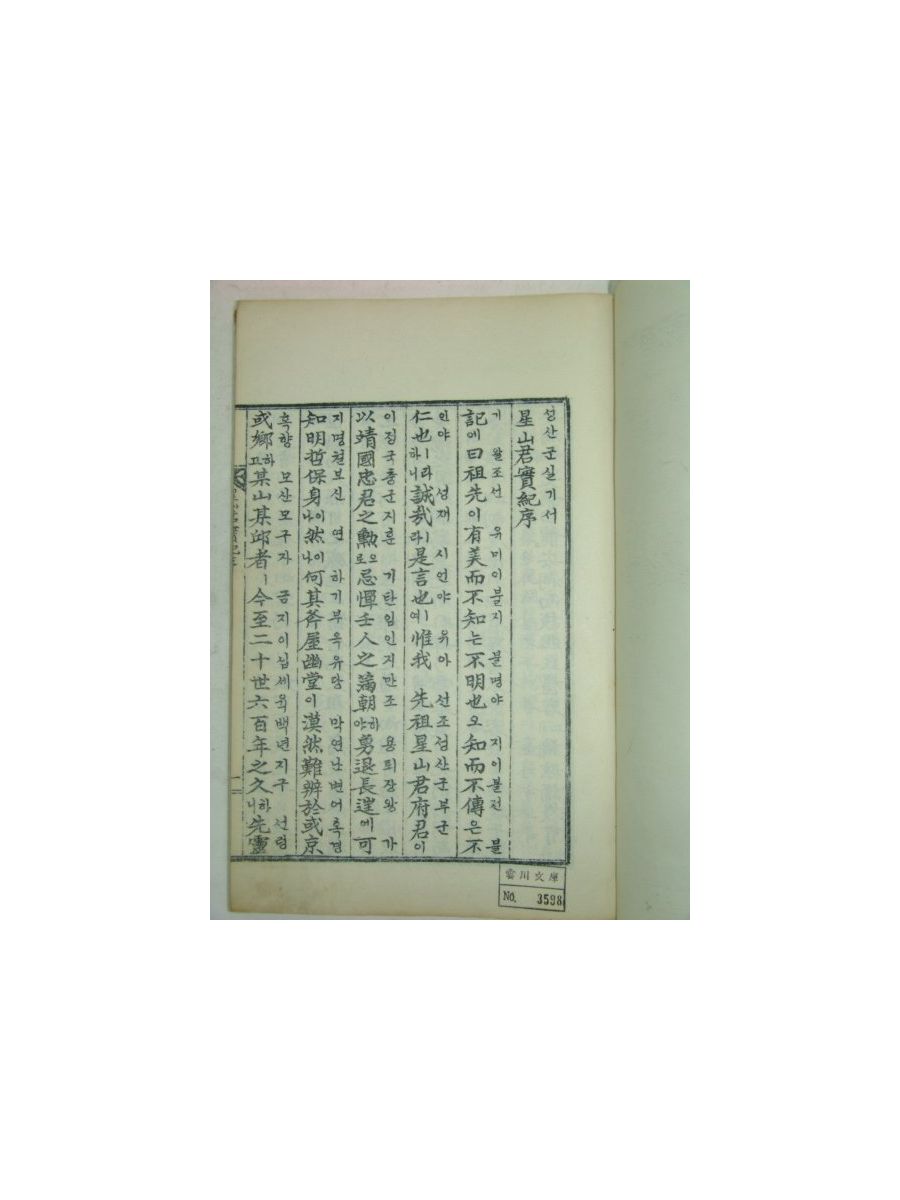 성산군실기서
星山君實紀序
기 왈조선 유미이불지 불명야 지이불전 불
記에曰祖先이有美而不知는不明也오知而不傳은不
인야 성재 시언야 유아 선조성산군부군
仁也ㅣ라하니誠哉라ㅣ是言也ㅣ여惟我 先祖星山君府君이
이정국충군지훈 기탄임인지만조 용퇴장왕 가
以靖國忠君之勳으로忌憚壬人之滿朝하야勇退長逞에可
지명철보신 연 하기부옥유당 막연난변어혹경
知明哲保身이나然이나何其斧屋幽堂이漠然難辨於或京
혹향 모산모구자 금지이십세육백년지구 선령
或鄕하고某山某邱者ㅣ今至二十世六百年之久하니先靈
雲川文庫
No. 3598